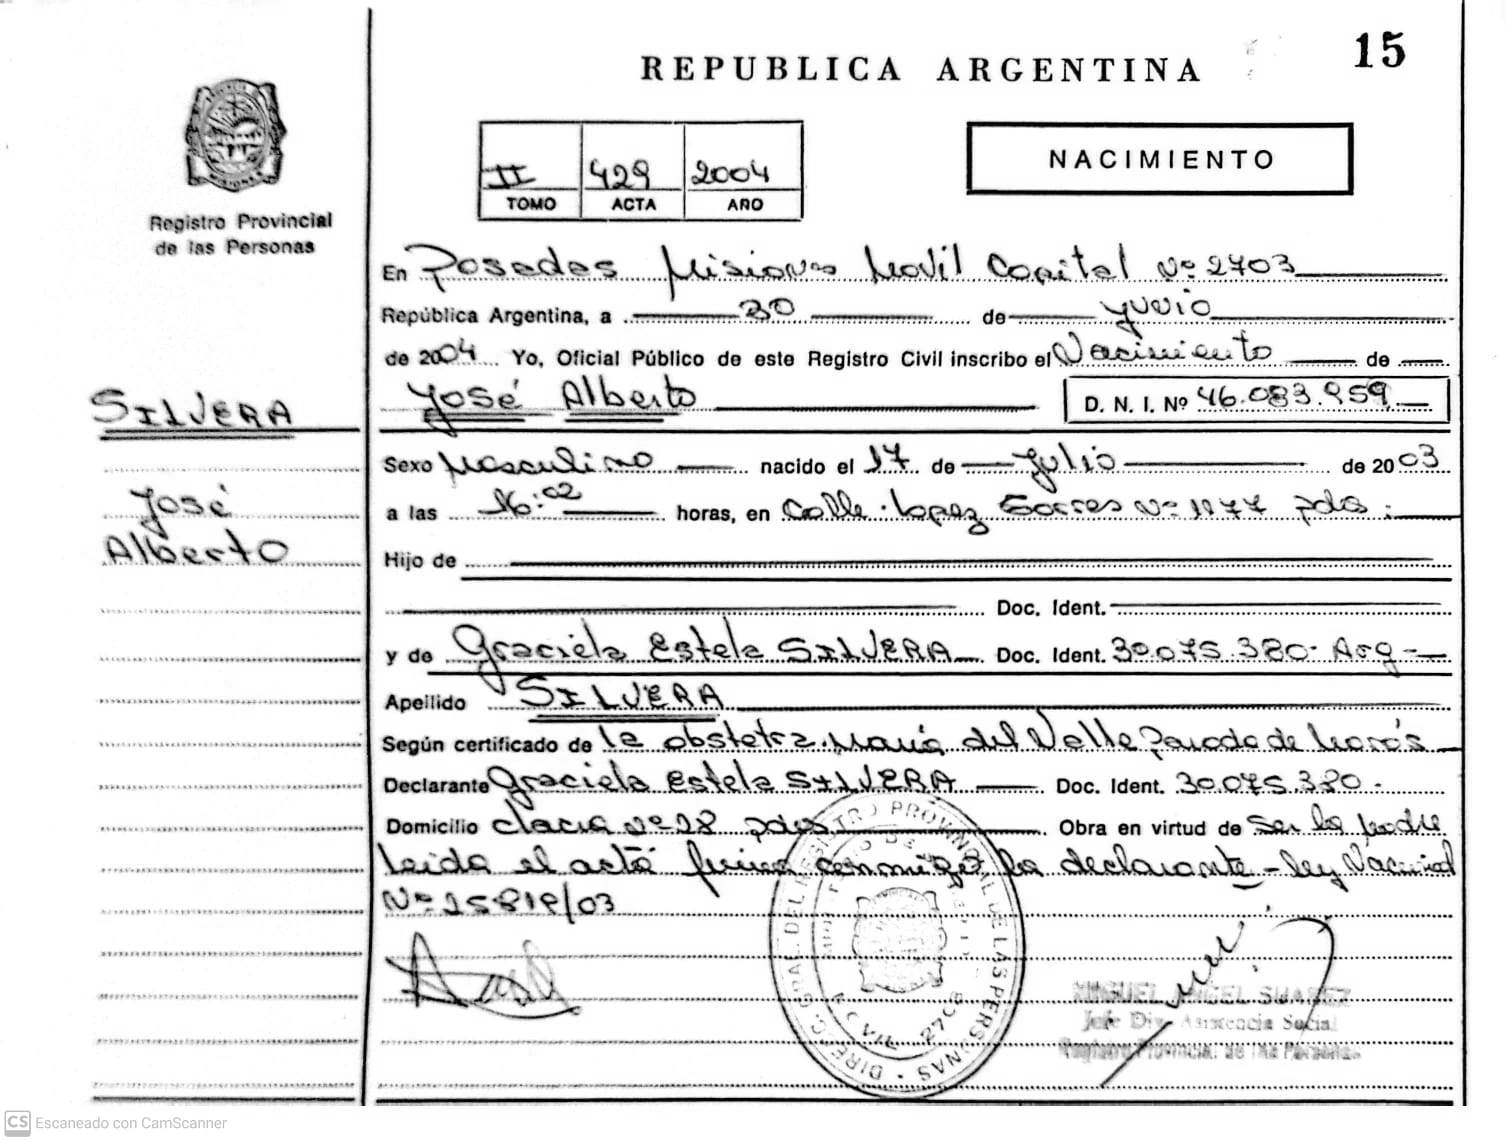 REPUBLICA ARGENTINA
15
NACIMIENTO
II 429 2004
TOMO ACTA AÑO
Registro Provincial
de las Personas
En Posadas Misiones Movil Capital Nº 2703
República Argentina, a 30 de Junio
de 2004 Yo, Oficial Público de este Registro Civil inscribo el Nacimiento de
José Alberto D. N. I. Nº 46.083.959
SILVERA
José
Alberto
Sexo Masculino nacido el 17 de Julio de 2003
a las 16:02 horas, en Calle Lopez Torres Nº 1177 pdas.
Hijo de
Doc. Ident.
y de Graciela Estela SILVERA Doc. Ident. 30.075.380 Arg
Apellido SILVERA
Según certificado de la obstetra María del Valle de
Declarante Graciela Estela SILVERA Doc. Ident. 30.075.380
Domicilio chacra Nº 28 pdas Obra en virtud de Ser la madre
leida el acta firma conmigo la declarante - ley Nacional
Nº 25819/03
DIRECC. GRAL. DEL REGISTRO PROVINCIAL DE LAS PERSONAS
MOVIL 2703
MIGUEL ANGEL SUAREZ
Jefe Div. Asistencia Social
Registro Provincial de las Personas
CS Escaneado con CamScanner